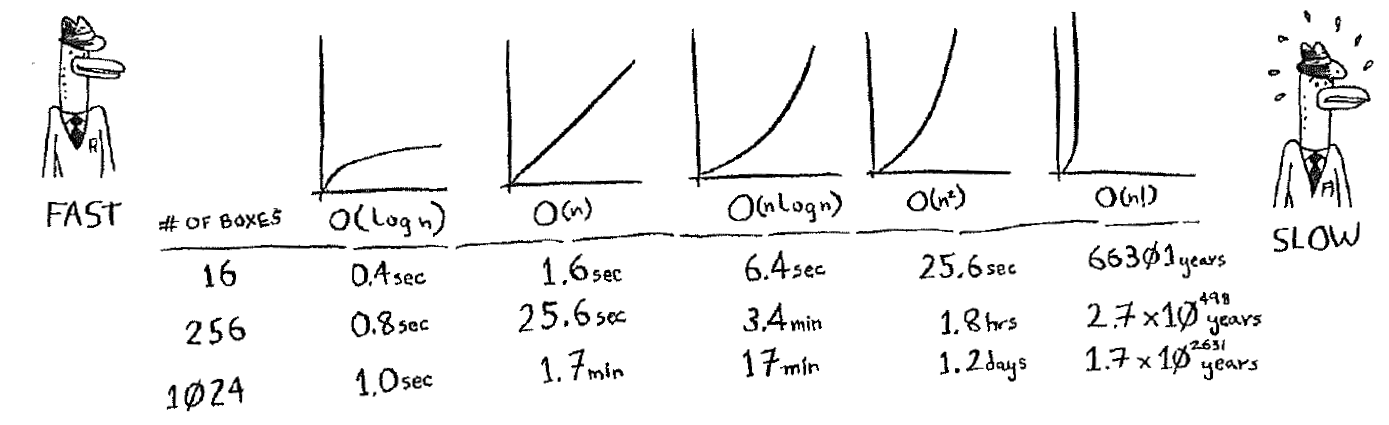 FAST # OF BOXES O(log n) O(n) O(n log n) O(n²) O(n!) SLOW
16 0.4 sec 1.6 sec 6.4 sec 25.6 sec 66301 years
256 0.8 sec 25.6 sec 3.4 min 1.8 hrs 2.7 x 10⁴⁹⁸ years
1024 1.0 sec 1.7 min 17 min 1.2 days 1.7 x 10²⁶³¹ years